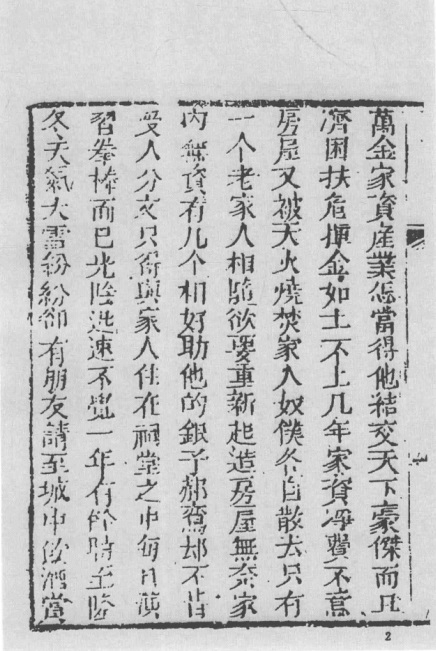 萬金家資産業怎當得他結交天下豪傑而且
濟困扶危揮金如土不上几年家資凈費不意
房屋又被天火燒焚家人奴僕各自散去只有
一个老家人相隨欲要重新起造房屋無奈家
内無資有几个相好助他的銀子郝鸞却不肯
受人分文只得與家人住在祠堂之中每日演
習拳棒而已光陰迅速不覺一年有餘時至隆
冬天氣大雪紛紛卻有朋友請至城中飲酒當
2